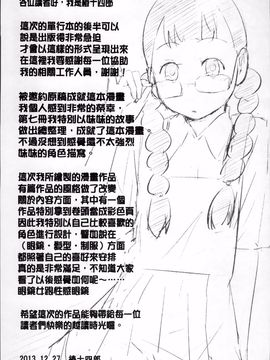 各位讀者好，我是繪十四郎
這次的單行本的後半可以
說是出版得非常急迫
才會以這樣的形式呈現出來
在這裡我要感謝每一位協助
我的相關工作人員，謝謝！
被邀約原稿成就這本漫畫
我個人感到非常的榮幸。
第七冊我特別以味味的故事
做出總整理，成就了這本漫畫
不過沒想到感覺還不太強烈
味味的角色描寫
這次我所繪製的漫畫作品
有篇作品的原稿做了改變
關於內容方面，其中有一個
作品特別拿到卷頭當成彩色頁
因此我特別以自己比較喜歡的
角色進行設計，譬如說在
（眼鏡、髮型、制服）方面
都照著自己的喜好來安排
真的是非常滿足，不知道大家
看了以後感覺如何呢…
眼鏡廿跟性感眼鏡
希望這次的作品能夠帶給每一位
讀者們快樂的越讀時光喔。
2013.12.27 繪十四郎